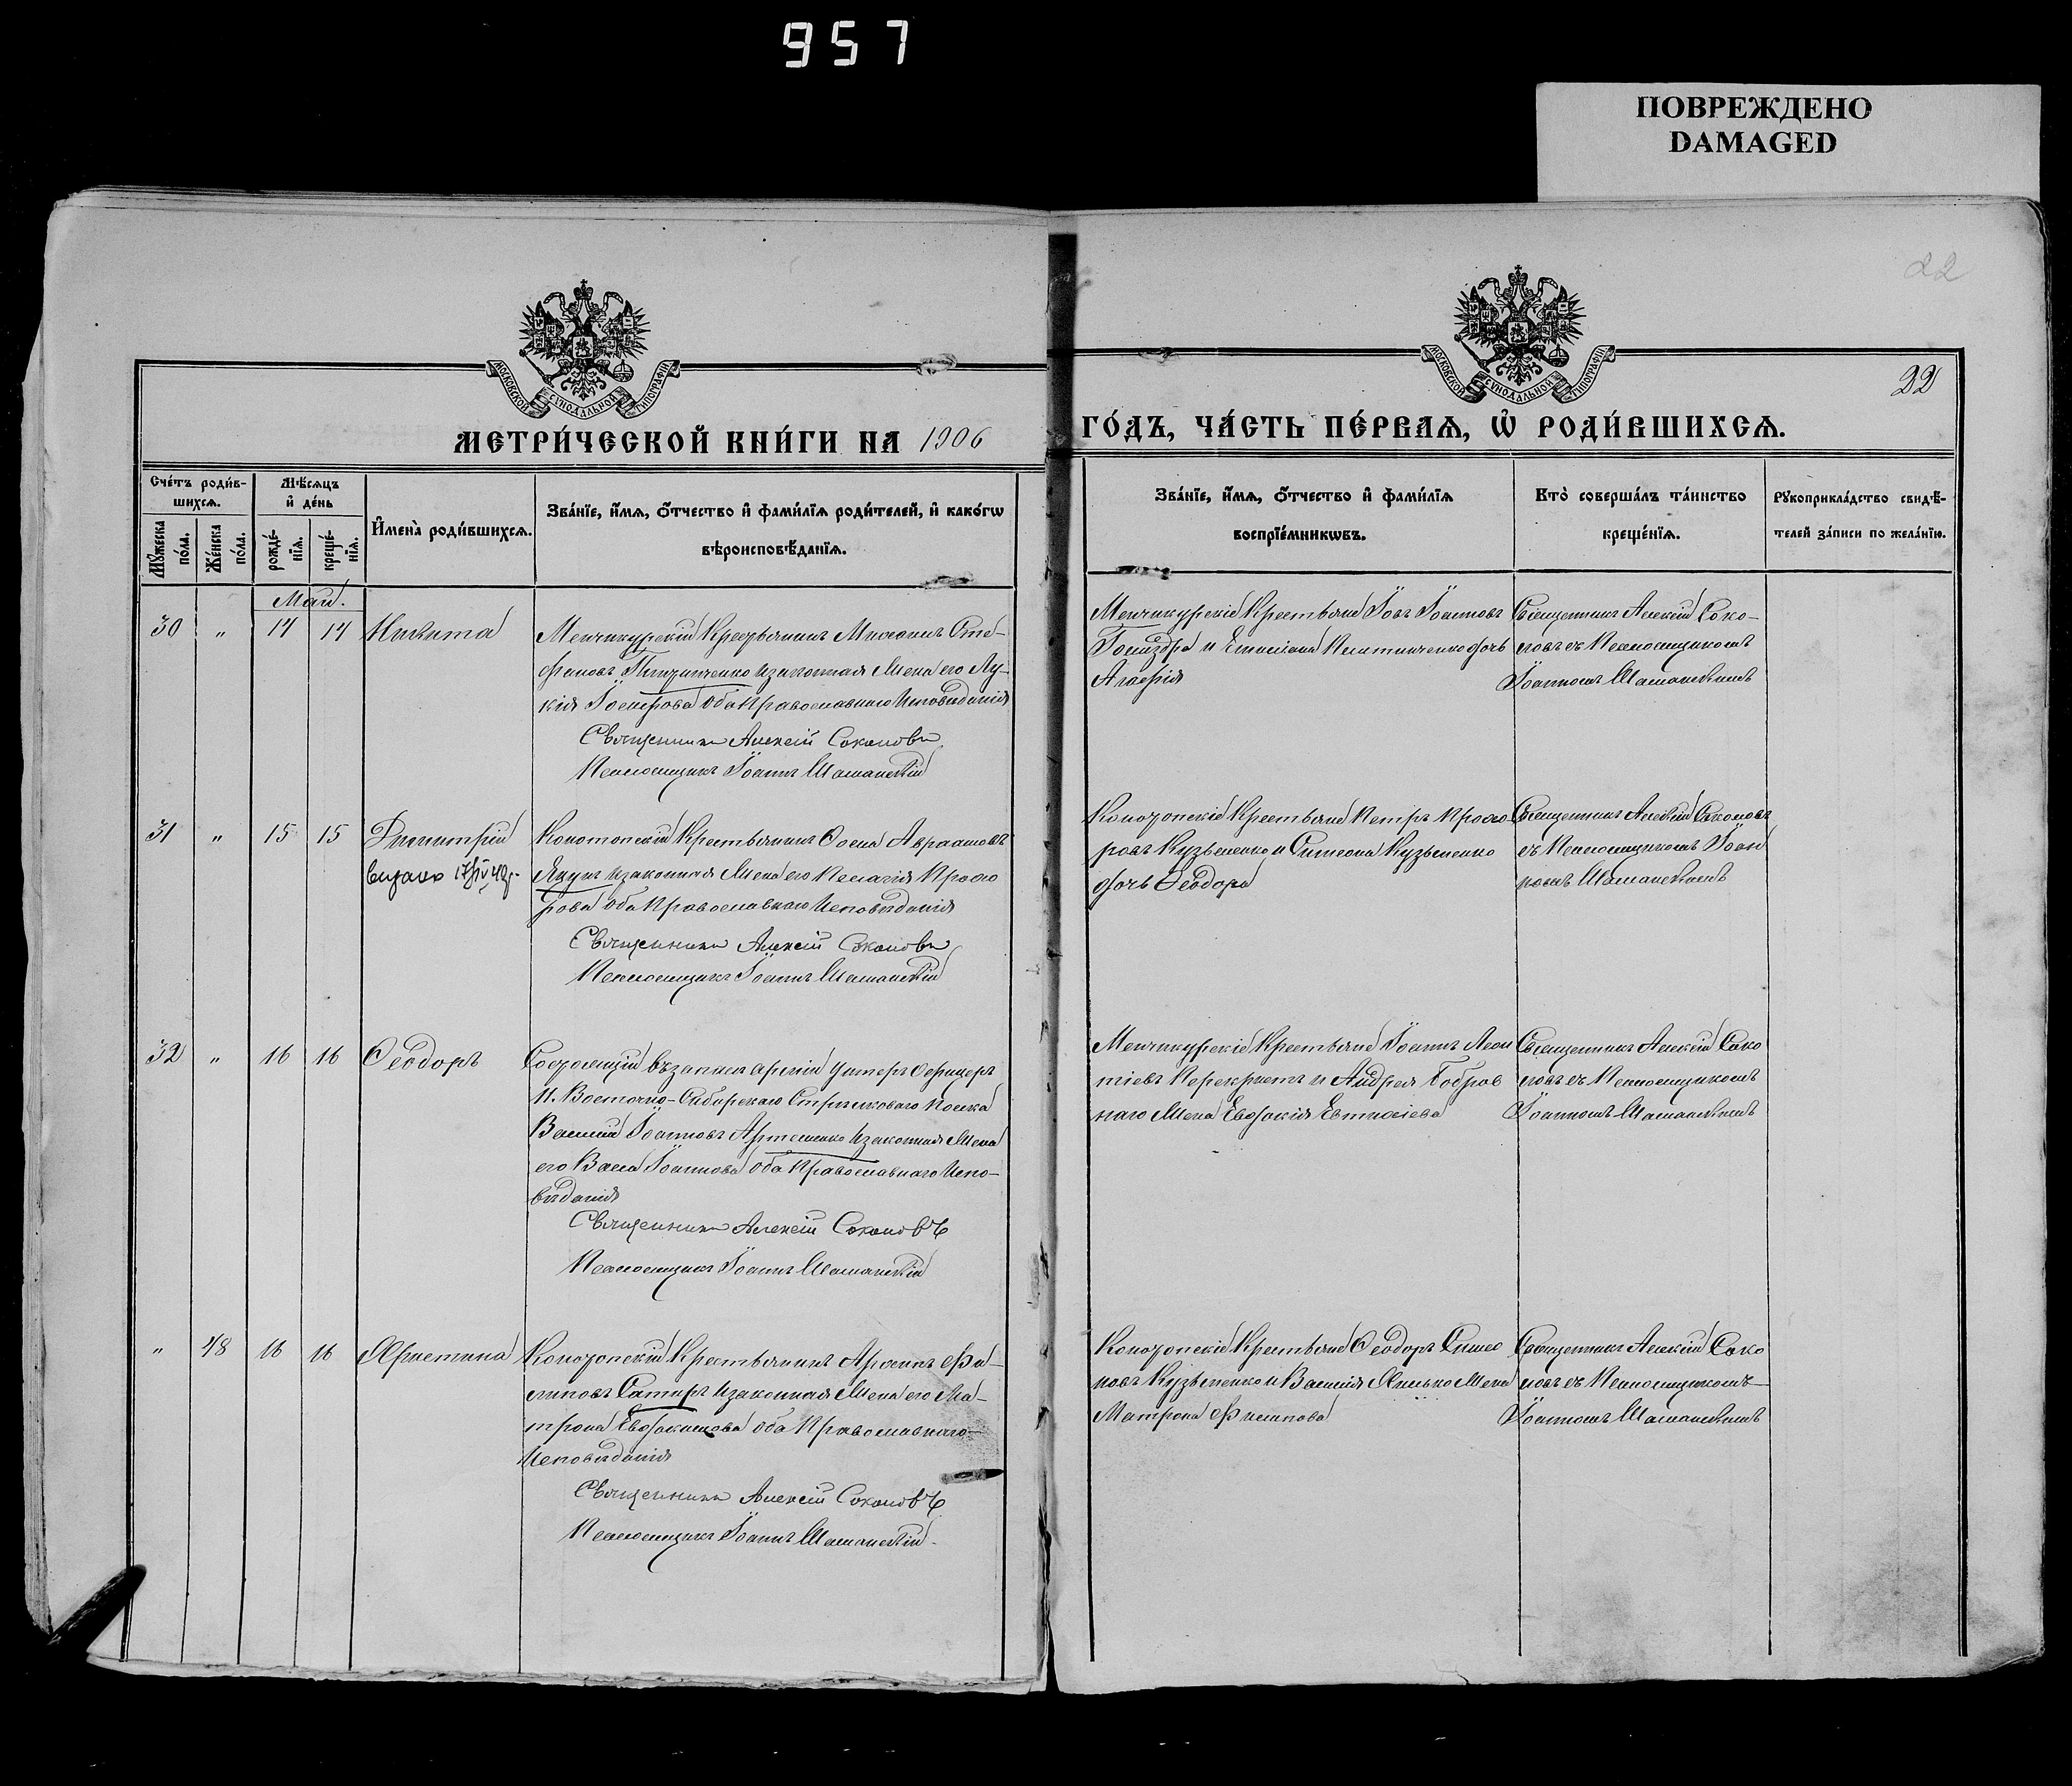 957
ПОВРЕЖДЕНО
DAMAGED
22
22
МОСКОВСКОЙ СУНОДАЛЬНОЙ ТИПОГРАФІИ
МОСКОВСКОЙ СУНОДАЛЬНОЙ ТИПОГРАФІИ
МЕТРИ́ЧЕСКОЙ КНИ́ГИ НА 1906
ГО́ДЪ, ЧА́СТЬ ПЕ́РВАЯ, Ѡ҆ РОДИ́ВШИХСЯ.
Сче́тъ роди́в-
шихся.
Мѹ́жеска по́ла.
Же́нска по́ла.
Мѣ́сяцъ
и҆ де́нь
рожде́-
нїя.
креще́-
нїя.
И҆мена̀ роди́вшихся.
Зва́нїе, и҆́мя, ѻ҆́тчество и҆ фами́лїя роди́телей, и҆ како́гѡ
вѣроисповѣ́данїя.
Зва́нїе, и҆́мя, ѻ҆́тчество и҆ фами́лїя
воспрїе́мникѡвъ.
Кто̀ соверша́лъ та́инство
креще́нїя.
Рѹкоприкла́дство свидѣ́-
телей за́писи по жела́нїю.
Май.
30 " 14 14 Никита
Менчикурскій Крестьянинъ Сте-
фановъ и законная Жена его Лу-
кія Оба Православнаго Исповѣданія
Священникъ Алексій Соколовъ
Псаломщикъ Іоаннъ Шаманскій
Менчикурскіе Крестьяне Іовъ Іоанновъ
и дочь
Агафія
Священникъ Алексій Соко-
ловъ съ Псаломщикомъ
Іоанномъ Шаманскимъ
31 " 15 15 Димитрій
Конотопскій Крестьянинъ Авраамовъ
Яцунъ и законная Жена его Пелагія Прохо
рова Оба Православнаго Исповѣданія
Священникъ Алексій Соколовъ
Псаломщикъ Іоаннъ Шаманскій
Конотопскіе Крестьяне Петръ Прохо
ровъ Кузьменко и Симеона Кузьменко
дочь Ѳеодора
Священникъ Алексій Соколовъ
съ Псаломщикомъ Іоан
номъ Шаманскимъ
32 " 16 16 Ѳеодоръ
Состоящій въ запасѣ арміи Унтеръ Офицеръ
11. Восточно-Сибирскаго Стрѣлковаго Полка
Василій Іоанновъ Артеменко и законная Жена
его Васса Іоаннова Оба Православнаго Испо-
вѣданія
Священникъ Алексій Соколовъ
Псаломщикъ Іоаннъ Шаманскій
Менчикурскіе Крестьяне Іоаннъ Леон
тіевъ Перехристъ и Андрея Бобров
наго Жена Евдокія
Священникъ Алексій Соко
ловъ съ Псаломщикомъ
Іоанномъ Шаманскимъ
" 48 16 16 Христина
Конотопскій Крестьянинъ Фи-
липовъ и законная Жена его Ма-
трона Евдокимова Оба Православнаго
Исповѣданія
Священникъ Алексій Соколовъ
Псаломщикъ Іоаннъ Шаманскій
Конотопскіе Крестьяне Ѳеодоръ Симео
новъ Кузьменко и Василія Жена
Матрона Филипова
Священникъ Алексій Соко
ловъ съ Псаломщикомъ
Іоанномъ Шаманскимъ